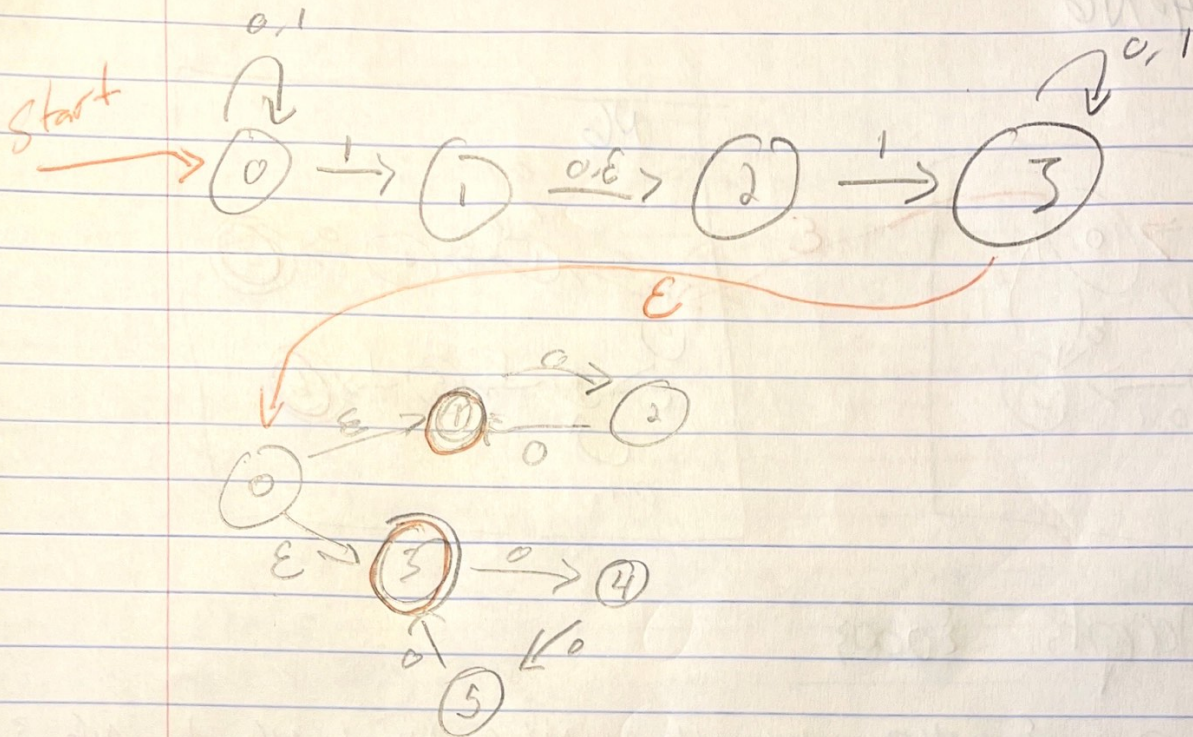 0,1
0,1
Start
0 1 1 0,ε 2 1 3
ε
0
ε 1 2
0
0
ε 3 0 4
0 0
5